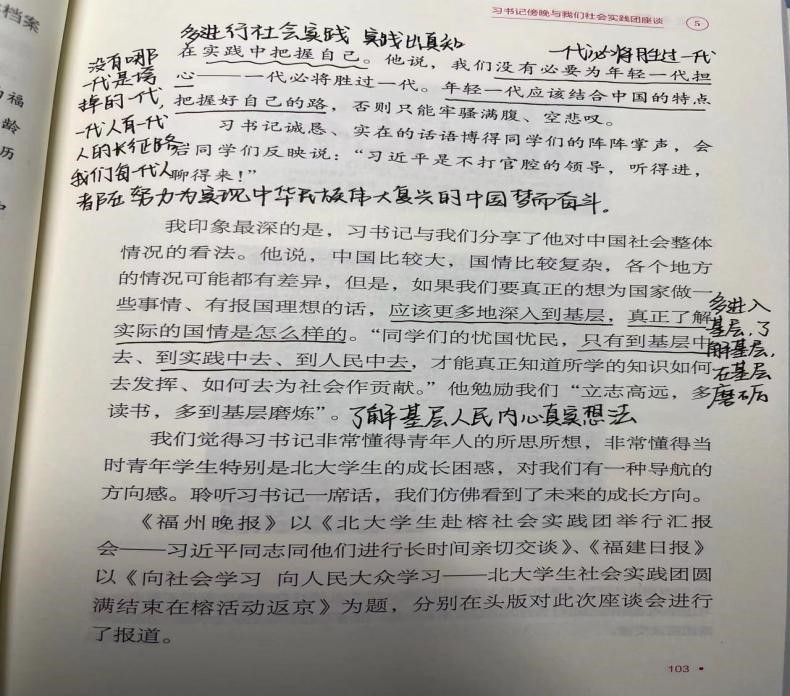 习书记傍晚与我们社会实践团座谈 5
多进行社会实践 实践出真知
一代必将胜过一代
在实践中把握自己。他说，我们没有必要为年轻一代担
心——一代必将胜过一代。年轻一代应该结合中国的特点
把握好自己的路，否则只能牢骚满腹、空悲叹。
没有哪
一代是垮
掉的一代，
一代人有一代
人的长征路
我们每一代人
都在努力为实现中华民族伟大复兴的中国梦而奋斗。
习书记诚恳、实在的话语博得同学们的阵阵掌声，会
后同学们反映说：“习近平是不打官腔的领导，听得进，
聊得来！”
我印象最深的是，习书记与我们分享了他对中国社会整体
情况的看法。他说，中国比较大，国情比较复杂，各个地方
的情况可能都有差异，但是，如果我们要真正的想为国家做一
些事情、有报国理想的话，应该更多地深入到基层，真正了解
实际的国情是怎么样的。“同学们的忧国忧民，只有到基层中
去、到实践中去、到人民中去，才能真正知道所学的知识如何
去发挥、如何去为社会作贡献。”他勉励我们“立志高远，多
读书，多到基层磨炼”。
多进入
基层，了
解基层，
在基层
磨砺
了解基层人民内心真实想法
我们觉得习书记非常懂得青年人的所思所想，非常懂得当
时青年学生特别是北大学生的成长困惑，对我们有一种导航的
方向感。聆听习书记一席话，我们仿佛看到了未来的成长方向。
《福州晚报》以《北大学生赴榕社会实践团举行汇报
会——习近平同志同他们进行长时间亲切交谈》、《福建日报》
以《向社会学习 向人民大众学习——北大学生社会实践团圆
满结束在榕活动返京》为题，分别在头版对此次座谈会进行
了报道。
103
档案
福
龄
历